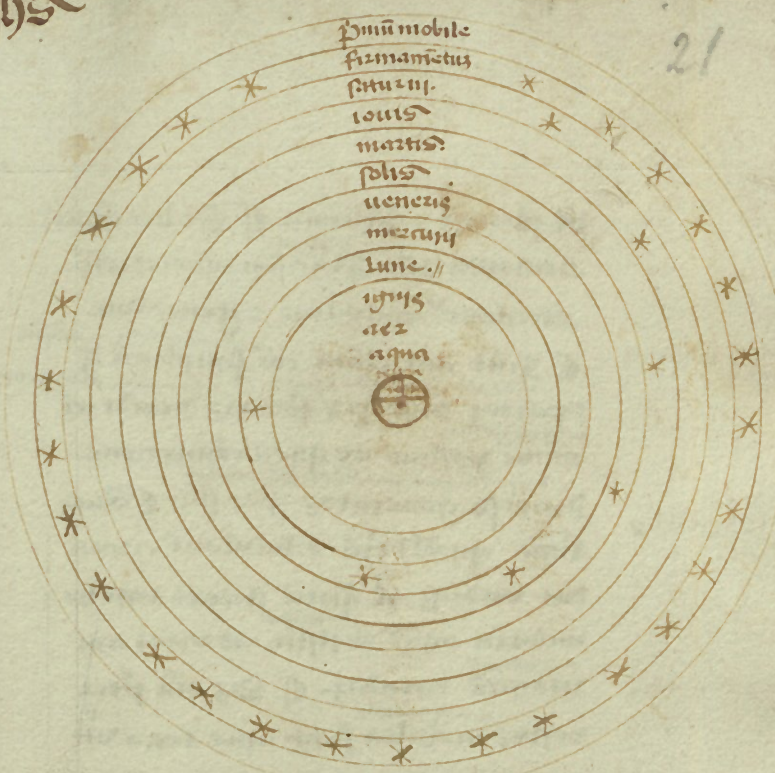 hs
21
p̄muū mobile
firmamētuʒ
saturni.
iouis
martis:
solis
ueneris
mercurii
Lune.//
ignis
aer
aqua